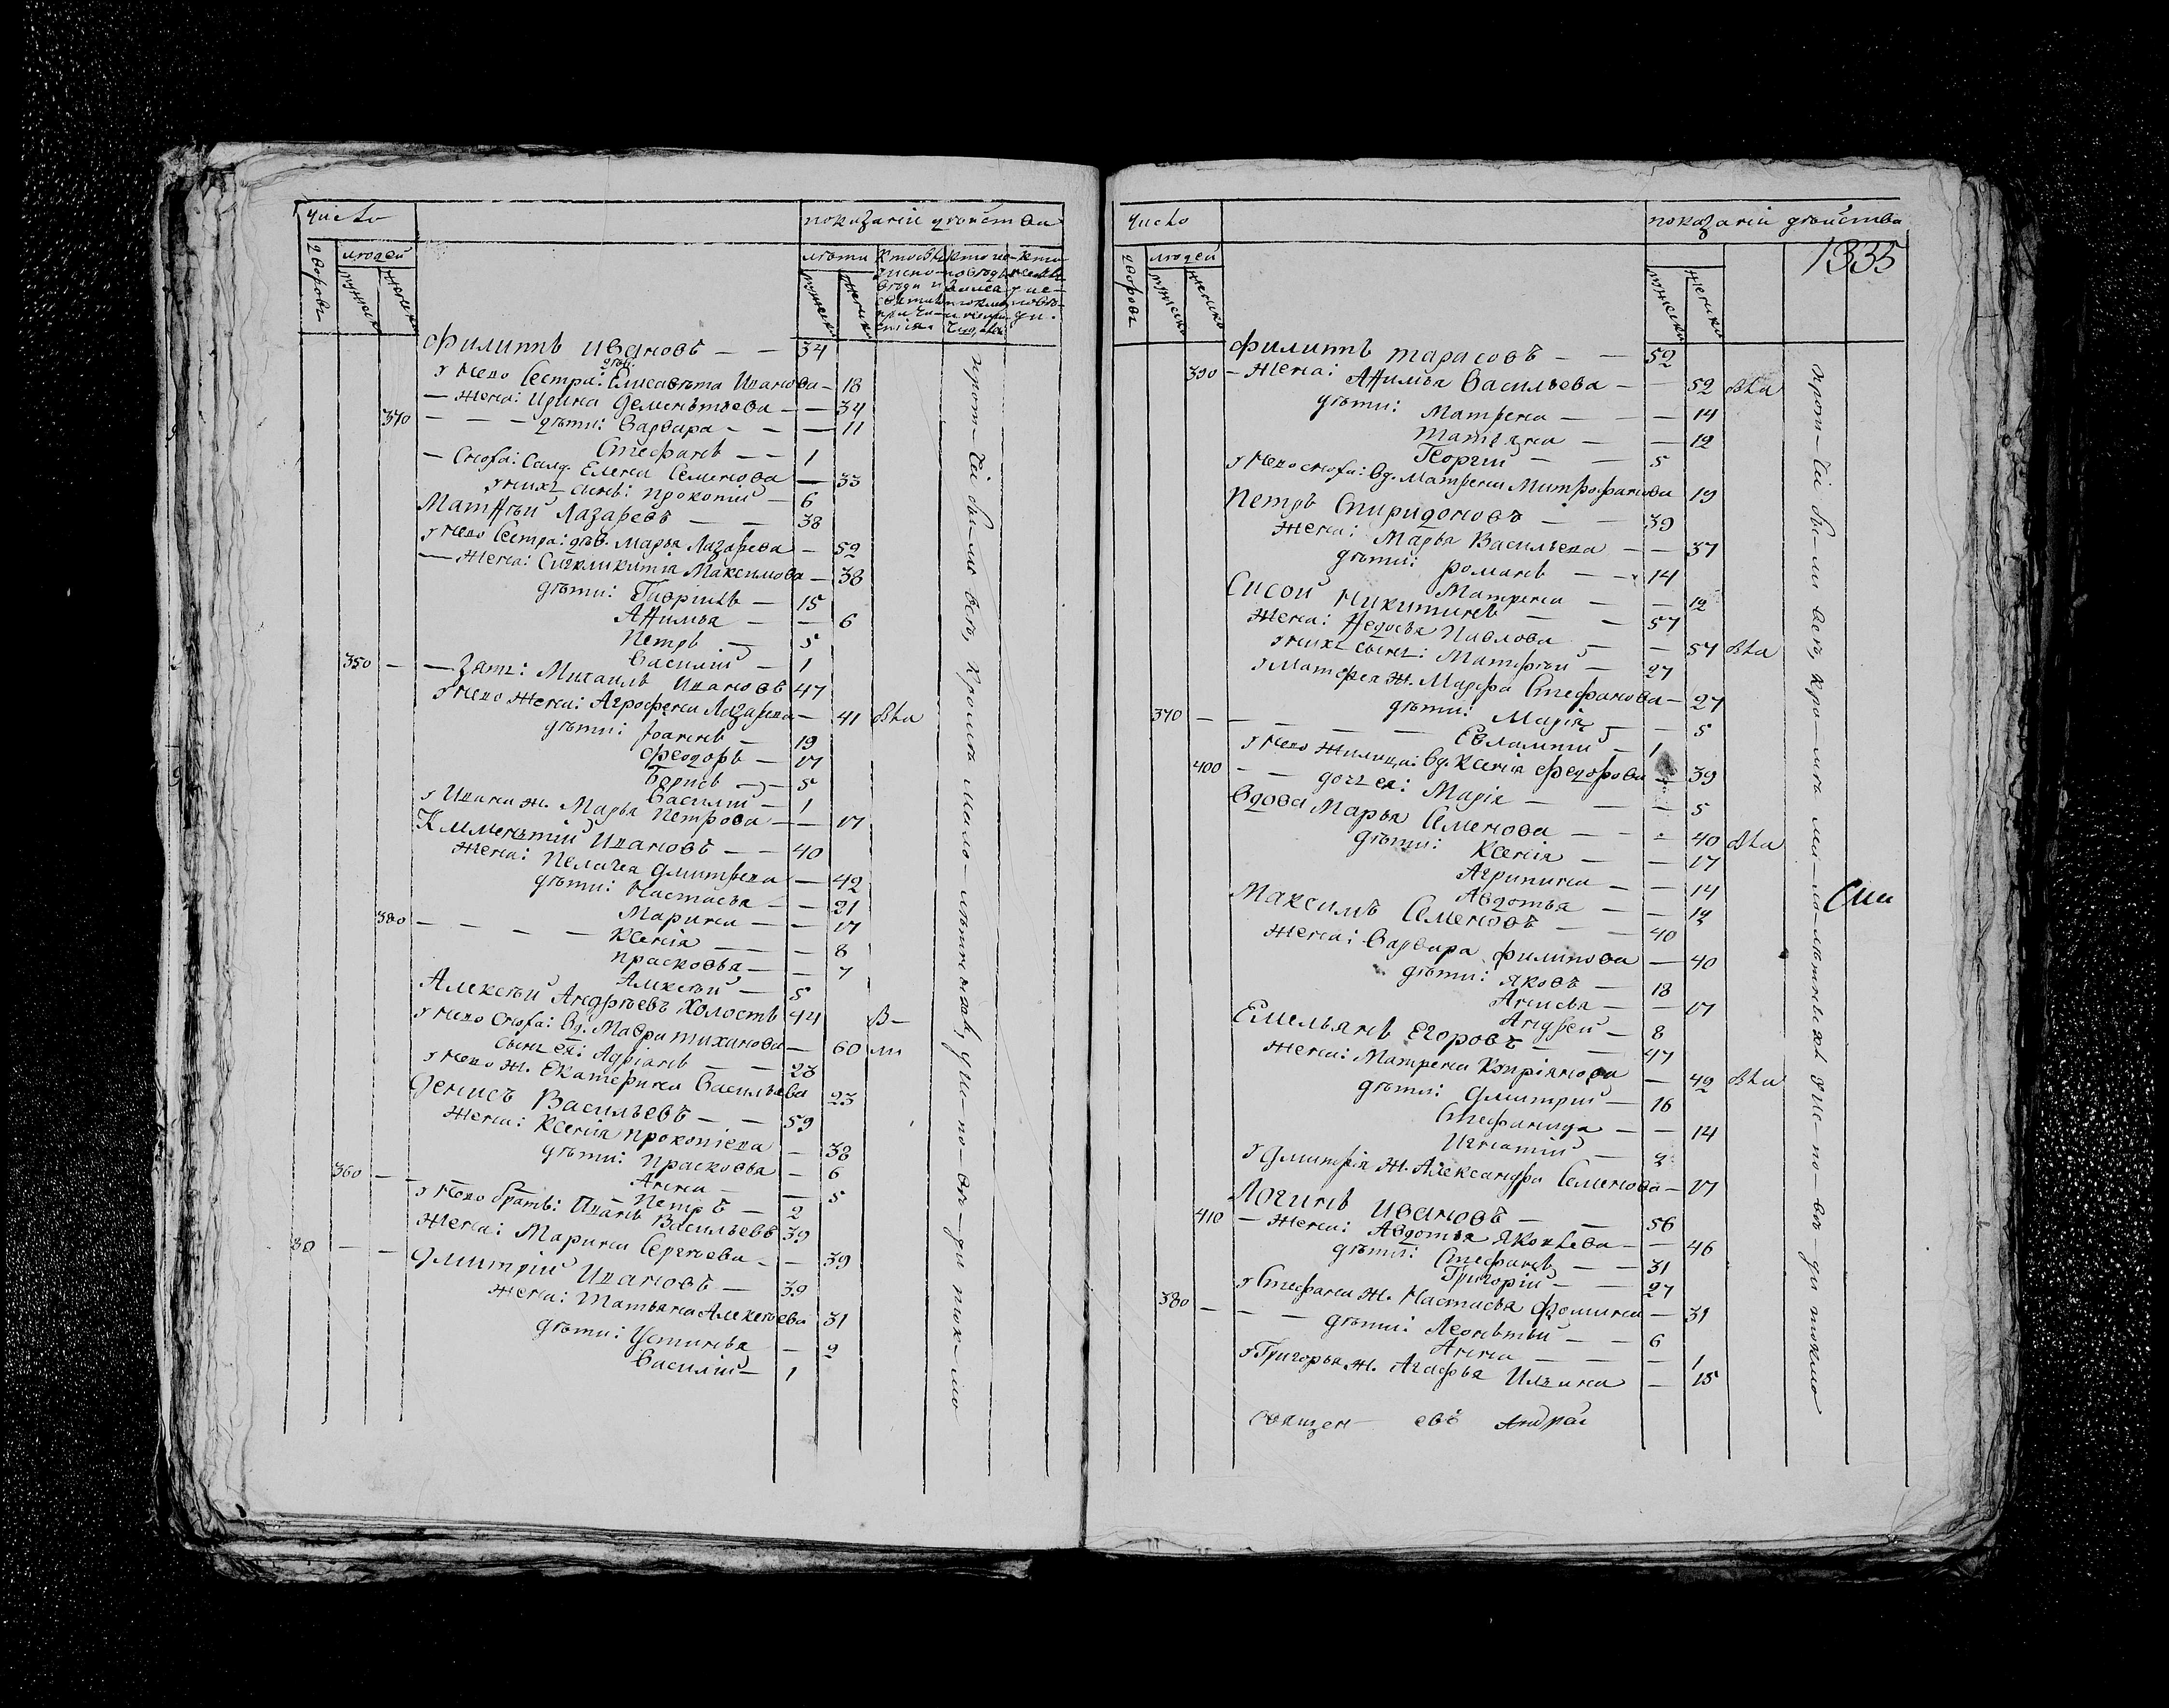 число
показаніи дѣйства
дворовъ
людей
мужеска
женска
лѣты
мужеска
женска
Филиппъ Ивановъ — — 34
у него сестра: дѣв: Елисавѣта Иванова — 18
— жена: Ирина Дементьева — — 34
370 — — — дѣти: Варвара — — — 11
Стефанъ — — 1
— сноха: салд. Елена Семенова — 33
у нихъ сынъ: Прокопій — 6
Матѳѣй Лазаревъ — — 38
у него сестра: дѣв. Марья Лазарева — 52
— жена: Сигкликитія Максимова — 38
дѣти: Гавріилъ — 15
Аѳимья — — 6
Петръ — 5
Василій — 1
350 — — зять: Михаилъ Ивановъ 47
у него жена: Агрофена Лазарева — 41 вѣа
дѣти: Іоаннъ — 19
Феодоръ — 17
Борисъ — 5
Василій — 1
у Ивана ж. Марья Петрова — — 17
Климентій Ивановъ — — 40
жена: Пелагея Дмитрева — 42
дѣти: Настасья — — 21
Марина — — 17
380 — — — — Ксенія — — — 8
Прасковья — — 7
Алексѣй — 5
Алексѣй Андрѣевъ холостъ 44
у него сноха: вд. Мавра Тиханова — 60
сынъ ея: Адріанъ — — 23
у него ж. Екатерина Васильева 23
Денисъ Васильевъ — — 59
жена: Ксенія Прокопіева — 38
дѣти: Прасковья — 6
360 — — Анна — — 5
Петръ — 2
у него братъ: Иванъ Васильевъ 39
жена: Марина Сергѣева — — 39
80 — — Дмитрій Ивановъ — 39
жена: Татьяна Алексѣева 31
дѣти: Устинья — 9
Василій — 1
число
показаніи дѣйства
1335
дворовъ
людей
мужеска
женска
мужеска
женска
Филиппъ Тарасовъ — — 52
390 — жена: Аѳимья Васильева — — 52 вѣа
дѣти: Матрена — — — 14
Татьяна — — 12
Георгій — — 5
у него сноха: вд. Матрена Митрофанова 19
Петръ Спиридоновъ — — 39
жена: Марья Васильева — — 37
дѣти: Романъ — — 14
Матрена — — 12
Сисой Никитинъ — — 57
жена: Ѳедосья Павлова — — 57 вѣа
у нихъ сынъ: Матфѣй — 27
у Матфея ж. Марфа Стефанова — 27
370 — — — дѣти: Марія — — 5
— — Евлампій — 1
у него жилица: вд. Ксенія Федорова — 39
400 — — дочь ея: Марія — — — 5
вдова Марья Семенова — — — 40 вѣа
дѣти: Ксенія — — 17
Агрипина — — 14
Авдотья — — 12
Максимъ Семеновъ — — 40
жена: Варвара Филипова — 40
дѣти: Яковъ — 18
Анисья — — 17
Андрей — 8
Емельянъ Егоровъ — — 47
жена: Матрена Кипріянова — 42 вѣа
дѣти: Дмитрій — 16
Стефанида — — 14
Игнатій — 2
у Дмитрія ж. Александра Семенова — 17
Логинъ Ивановъ — — 56
410 — жена: Авдотья Яковлева — — 46
дѣти: Стефанъ — — 31
Григорій — — 27
у Стефана ж. Настасья Фомина — 31
380 — — — дѣти: Леонтій — — 6
Анна — — — 1
у Григорья ж. Агафья Ильина — 15
священ евъ Андрѣй